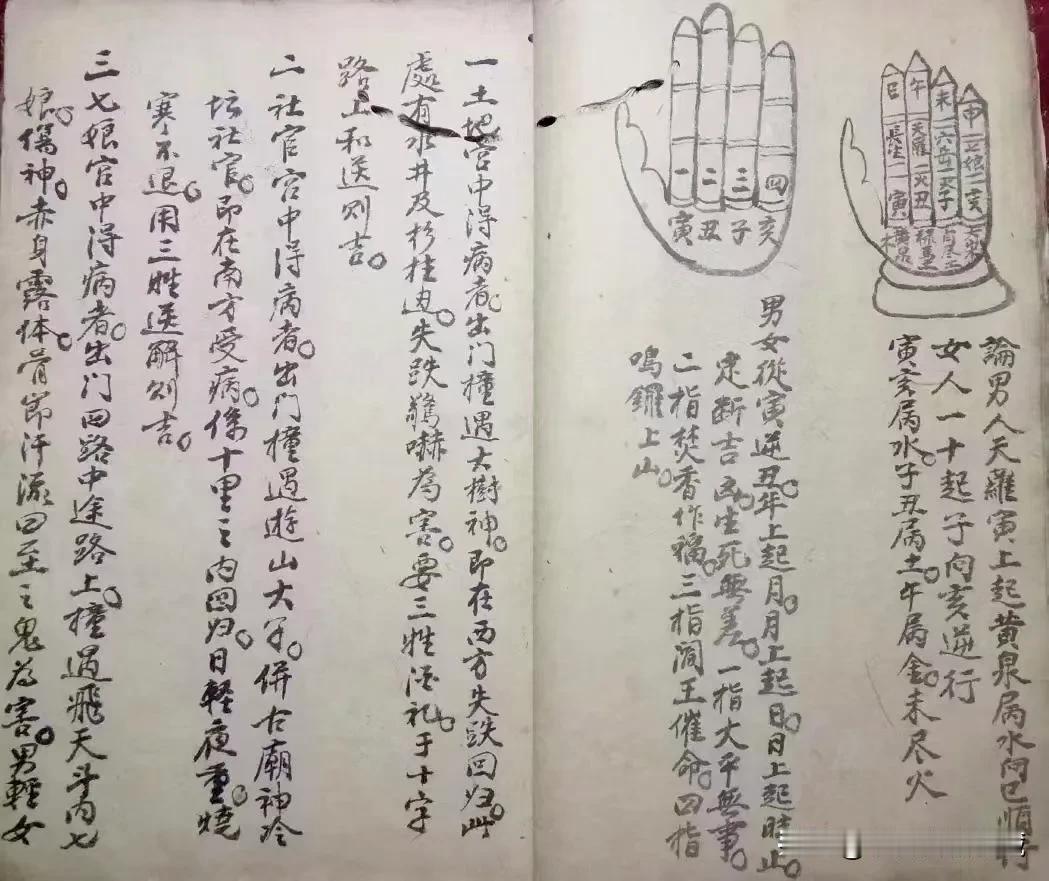 巳 午 未 申
長生 天羅 六合 七娘
寅 丑 子 亥
一 二 三 四
寅 丑 子 亥
論男人天羅寅上起黄泉局水向巳順行
女人一十起子向亥逆行
寅亥属水。子丑属土。午属金。未尽火
男女從寅逆丑。年上起月。月上起日。日上起時止。
定断吉凶。生死無差。一指大平無事。
二指焚香作福。三指阎王催命。四指
鳴鑼上山。
一土地宫中得病者。出门撞遇大樹神。即在西方失跌回归。此
處有水井及杉柱边。失跌驚嚇為害。要三牲酒礼。于十字
路上和送则吉。
二社官宫中得病者。出门撞遇遊山大子。併古廟神冷
坛社官。即在南方受病。係十里之内回归。日軽夜重。燒
寒不退。用三牲送解则吉。
三七娘宫中得病者。出门四路中途路上。撞遇飛天斗内七
娘。傷神。赤身露体。骨節汗流。四至之鬼為害。男輕女